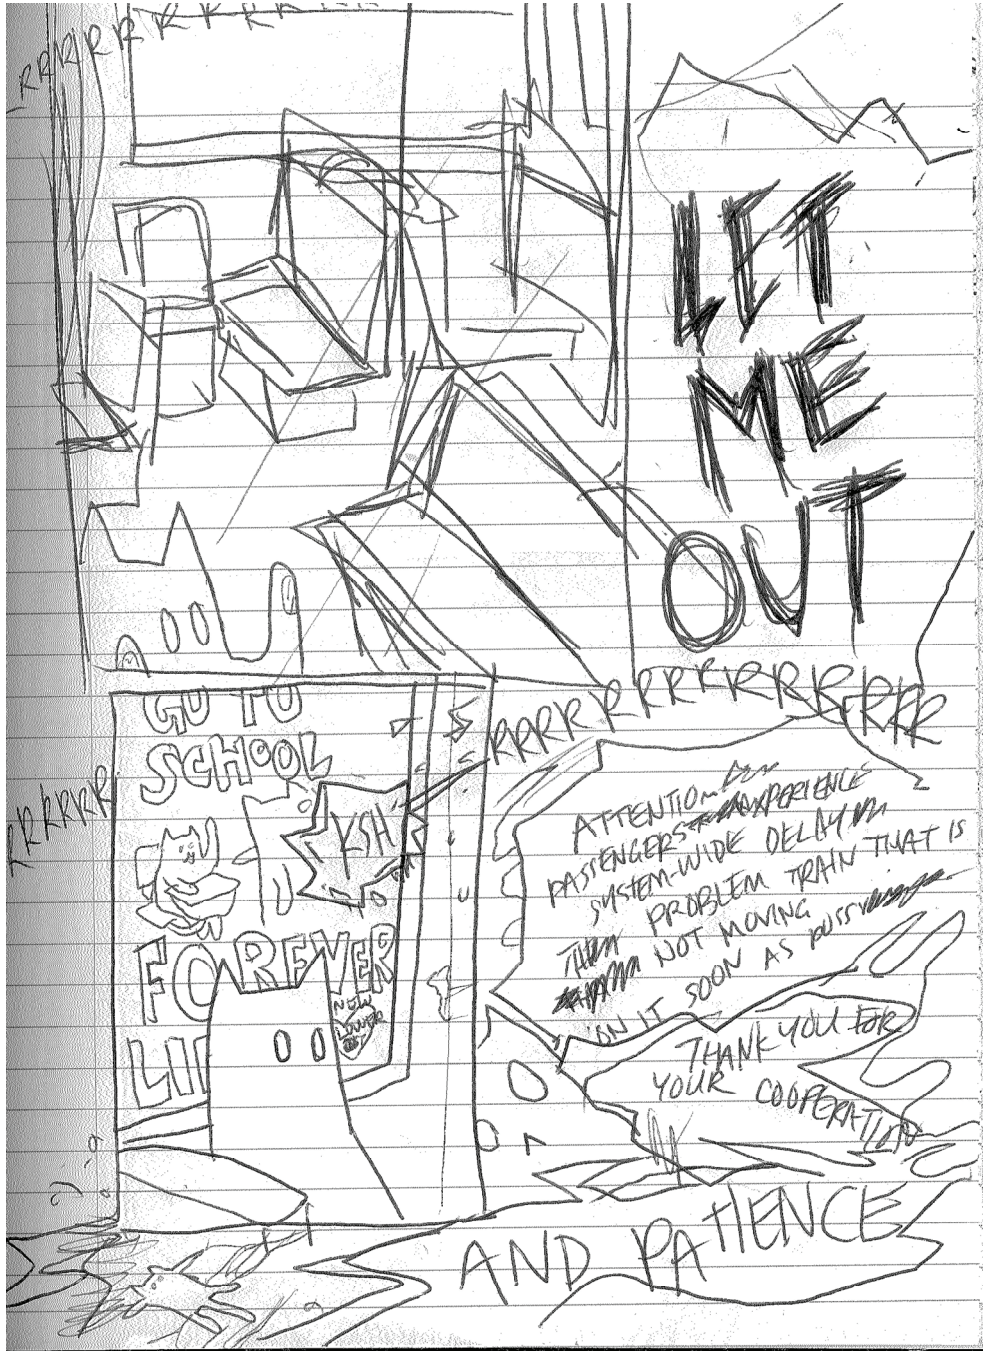 RRRRRRRRRRRR
LET
ME
OUT
RRRRRRRRRRRRRRRR
GO TO
SCHOOL
KSH
FOREVER
NEW
LOWER
LII
RRRRRR
ATTENTION
PASSENGERS EXPERIENCE
SYSTEM-WIDE DELAY
PROBLEM TRAIN THAT IS
NOT MOVING
ON IT SOON AS POSS
THANK YOU FOR
YOUR COOPERATION
AND PATIENCE